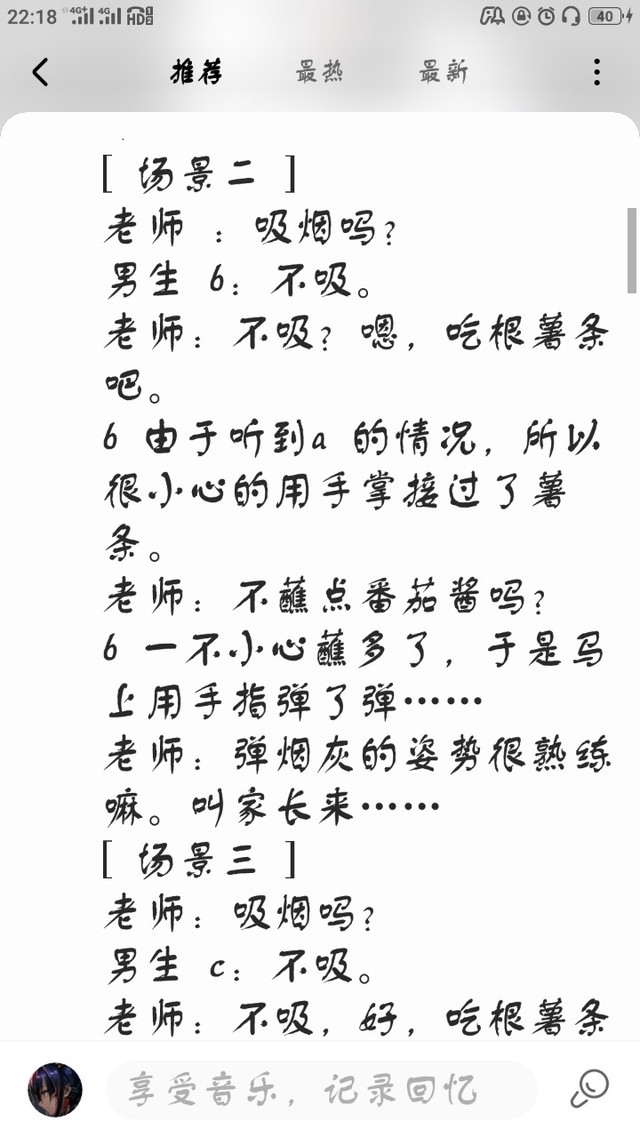 22:18 4G+ 4G HD 1 2 40
推荐 最热 最新
[ 场景二 ]
老师 ：吸烟吗？
男生 b：不吸。
老师：不吸？嗯，吃根薯条
吧。
b 由于听到a 的情况，所以
很小心的用手掌接过了薯
条。
老师：不蘸点番茄酱吗？
b 一不小心蘸多了，于是马
上用手指弹了弹……
老师：弹烟灰的姿势很熟练
嘛。叫家长来……
[ 场景三 ]
老师：吸烟吗？
男生 c：不吸。
老师：不吸，好，吃根薯条
享受音乐，记录回忆